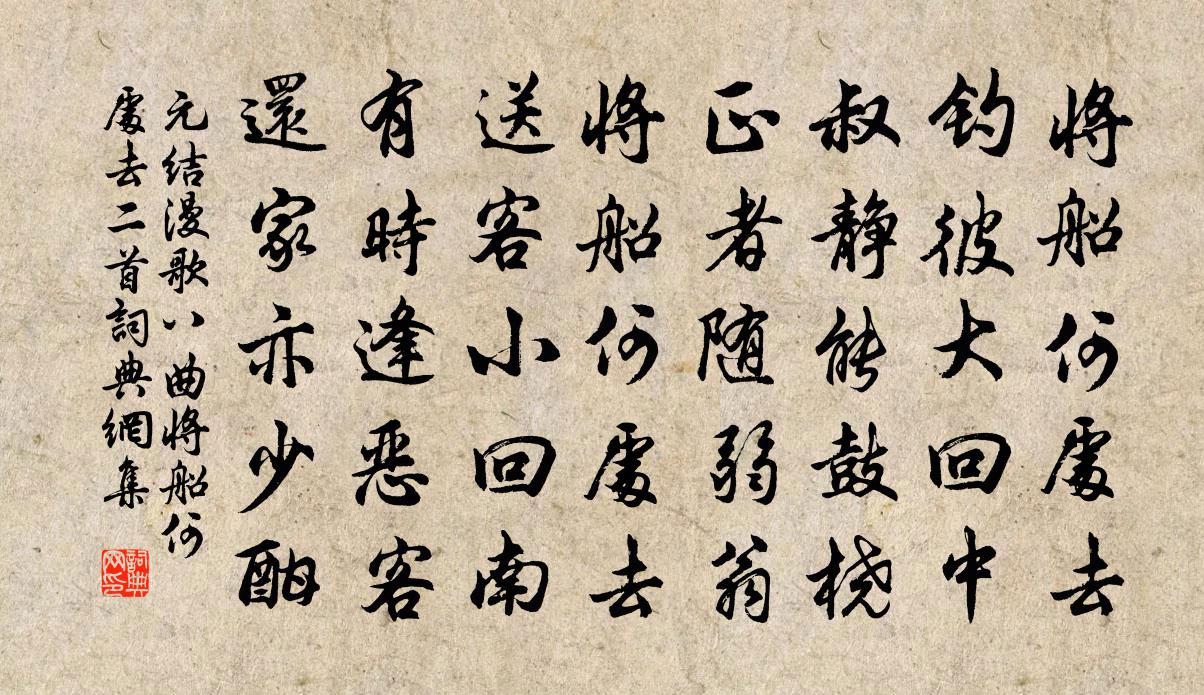 將船何處去
釣彼大回中
叔静能鼓橈
正者随弱翁
將船何處去
送客小回南
有時逢惡客
還家亦少酣
元结漫歌八曲將船何
處去二首詞典網集
詞典网印